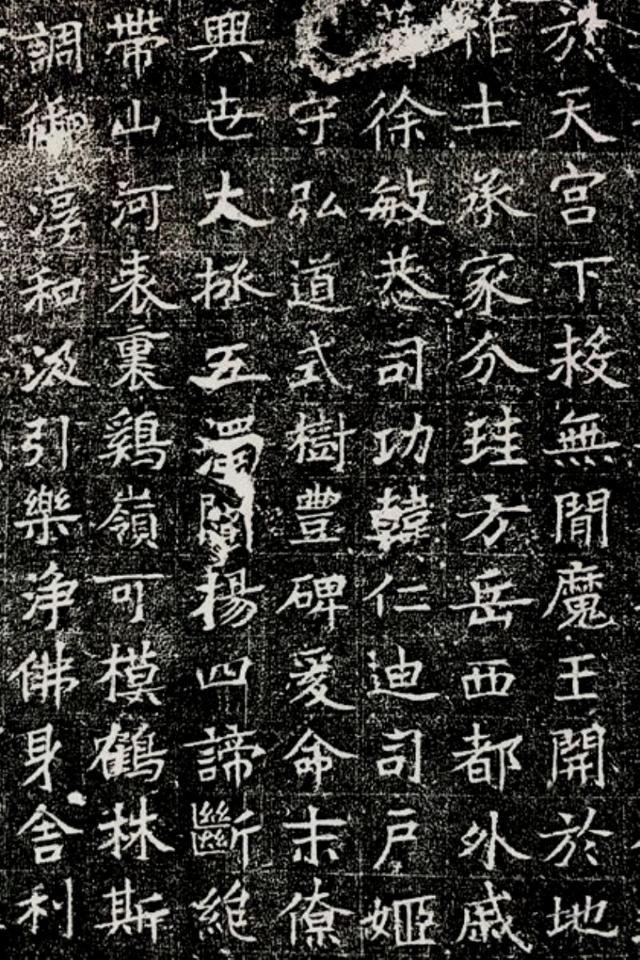 於天宮下拔無閒魔王開於地
作土承家分珪方岳西都外戚
徐敏恭司功韓仁迪司戶姬
守弘道式樹豐碑爰命末僚
興世大拯五濁闡揚四諦斷維
帶山河表裏鷄嶺可模鶴林斯
調御淳和汲引樂淨佛身舍利